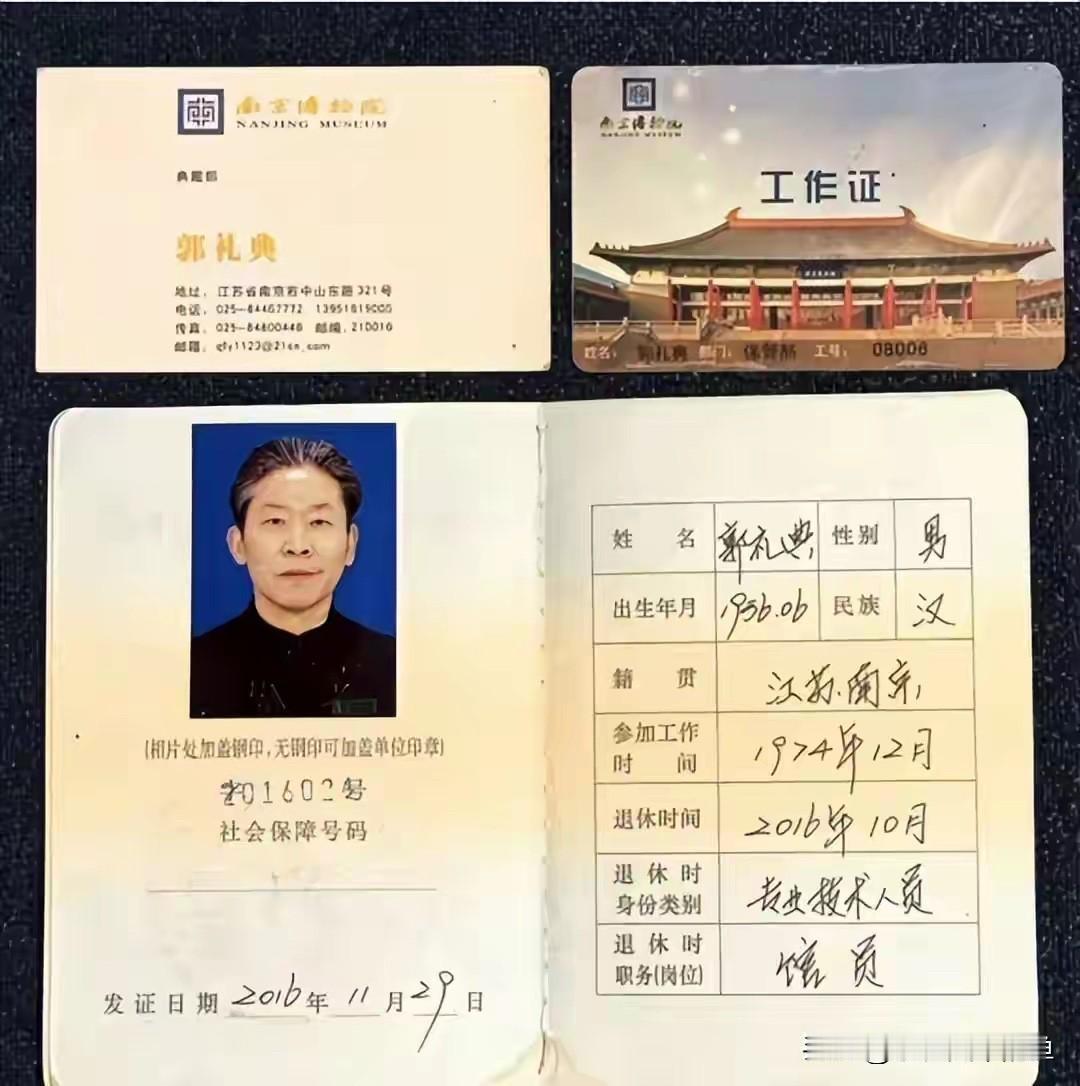 南京博物院
NANJING MUSEUM
典藏部
郭礼典
地址：江苏省南京市中山东路321号
电话：025-84467772 13951819005
传真：025-84800448 邮编：210016
邮箱：qfy1123@21cn.com
南京博物院
NANJING MUSEUM
工作证
姓名：郭礼典 部门：保管部 工号：08008
(相片处加盖钢印，无钢印可加盖单位印章)
201602号
社会保障号码
发证日期 2016年 11月29日
姓 名 郭礼典 性别 男
出生年月 1956.06 民族 汉
籍 贯 江苏.南京
参加工作
时 间 1974年12月
退休时间 2016年10月
退休时
身份类别 专业技术人员
退休时
职务(岗位) 馆员